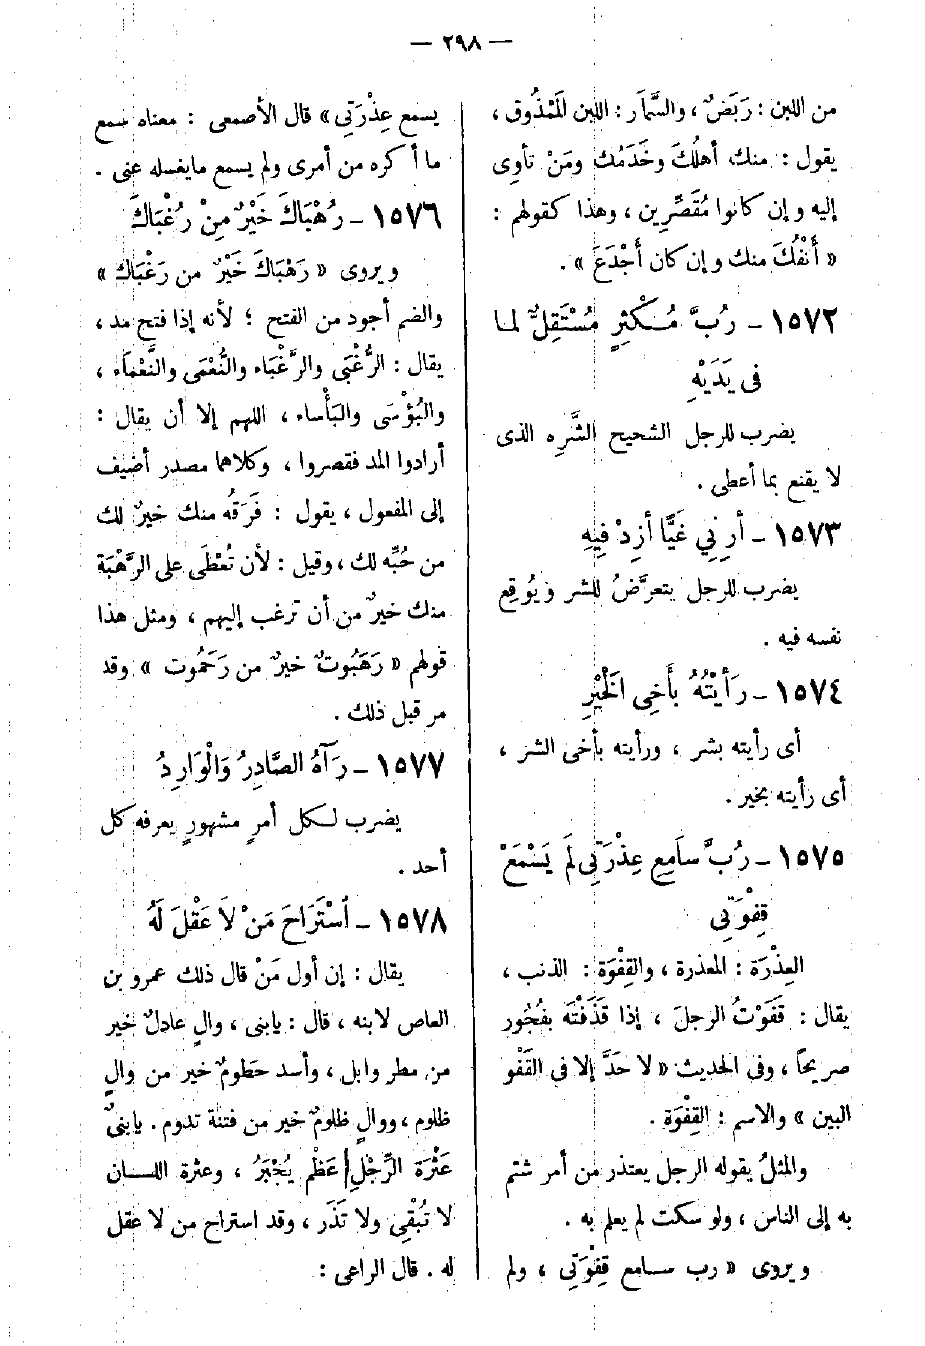 — ٢٩٨ —
من اللبن : رَبَضٌ ، والسَّمَار : اللبن المَمْذُوق ،
يقول : منك أهلُكَ وخَدَمُك ومَنْ تأوِى
إليه وإن كانوا مُقَصِّرِين ، وهذا كقولهم :
« أنْفُكَ منك وإن كان أجْدَعَ » .
١٥٧٢ – رُبَّ مُكْثِرٍ مُسْتَقِلٌّ لما
فى يَدَيْهِ
يضرب للرجل الشحيح الشَّرِه الذى
لا يقنع بما أعطى .
١٥٧٣ – أرِنِي غَيًّا أزِدْ فِيهِ
يضرب للرجل يتعرَّضُ للشر ويُوقِع
نفسه فيه .
١٥٧٤ – رَأيْتُهُ بأَخِى الْخَيْرِ
أى رأيته بشر ، ورأيته بأخى الشر ،
أى رأيته بخير .
١٥٧٥ – رُبَّ سَامِعِ عِذْرَتِى لَمْ يَسْمَعْ
قِفْوَتِى
العِذْرَة : المعذرة ، والقِفْوَة : الذنب ،
يقال : قَفَوْتُ الرجلَ ، إذا قَذَفْتَه بفُجُور
صريحًا ، وفى الحديث « لا حَدَّ إلا فى القَفْو
البين » والاسم : القِفْوَة .
والمثلُ يقوله الرجل يعتذر من أمر شتم
به إلى الناس ، ولو سكت لم يعلم به .
ويروى « رب سامع قِفْوَتِى ، ولم
يسمع عِذْرَتِى » قال الأصمعى : معناه سمع
ما أكره من أمرى ولم يسمع ما يغسله عنى .
١٥٧٦ – رُهْبَاكَ خَيْرٌ مِنْ رُغْبَاكَ
ويروى « رَهْبَاكَ خَيْرٌ من رَغْبَاك »
والضم أجود من الفتح ؛ لأنه إذا فتح مد ،
يقال : الرُّغْبَى والرَّغْبَاء والنُّعْمَى والنَّعْمَاء ،
والبُؤْسَى والبَأْساء ، اللهم إلا أن يقال :
أرادوا المد فقصروا ، وكلاهما مصدر أضيف
إلى المفعول ، يقول : فَرَقُه منك خيرٌ لك
من حُبِّه لك ، وقيل : لأن تُعْطَى على الرَّهْبَة
منك خيرٌ من أن ترغب إليهم ، ومثل هذا
قولهم « رَهَبُوتٌ خيرٌ من رَحَمُوت » وقد
مر قبل ذلك .
١٥٧٧ – رَآهُ الصَّادِرُ وَالْوَارِدُ
يضرب لكل أمرٍ مشهورٍ يعرفه كل
أحد .
١٥٧٨ – اسْتَرَاحَ مَنْ لاَ عَقْلَ لَهُ
يقال : إن أول مَنْ قال ذلك عمرو بن
العاص لابنه ، قال : يابنى ، والٍ عادلٌ خير
من مطر وابل ، وأسد حَطومٌ خير من والٍ
ظلوم ، ووالٍ ظلومٌ خير من فتنة تدوم . يابنىَّ
عَثْرَة الرِّجْلِ عَظْم يُجْبَرُ ، وعثرة اللسان
لا تُبْقِى ولا تَذَر ، وقد استراح من لا عقل
له . قال الراعى :